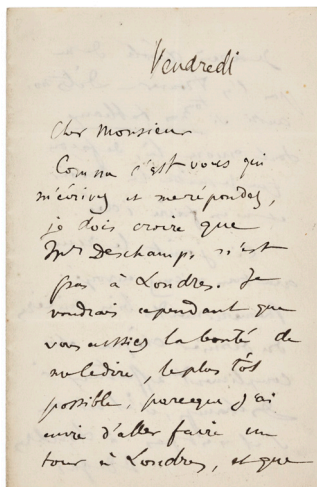 Vendredi
Cher Monsieur
Comme c'est vous qui
m'écrivez et me répondez,
je dois croire que
Mr Deschamps n'est
pas à Londres. Je
voudrais cependant que
vous eussiez la bonté de
me le dire, le plus tôt
possible, parceque j'ai
envie d'aller faire un
tour à Londres, et que